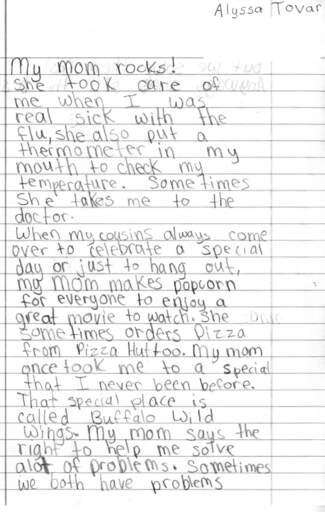 Alyssa Tovar
My mom rocks!
She took care of
me when I was
real sick with the
flu, she also put a
thermometer in my
mouth to check my
temperature. Sometimes
She takes me to the
doctor.
When my cousins always come
over to celebrate a special
day or just to hang out,
my mom makes popcorn
for everyone to enjoy a
great movie to watch. She
sometimes orders Pizza
from Pizza Hut too. My mom
once took me to a special
that I never been before.
That special place is
called Buffalo Wild
Wings. My mom says the
right to help me solve
alot of problems. Sometimes
we both have problems